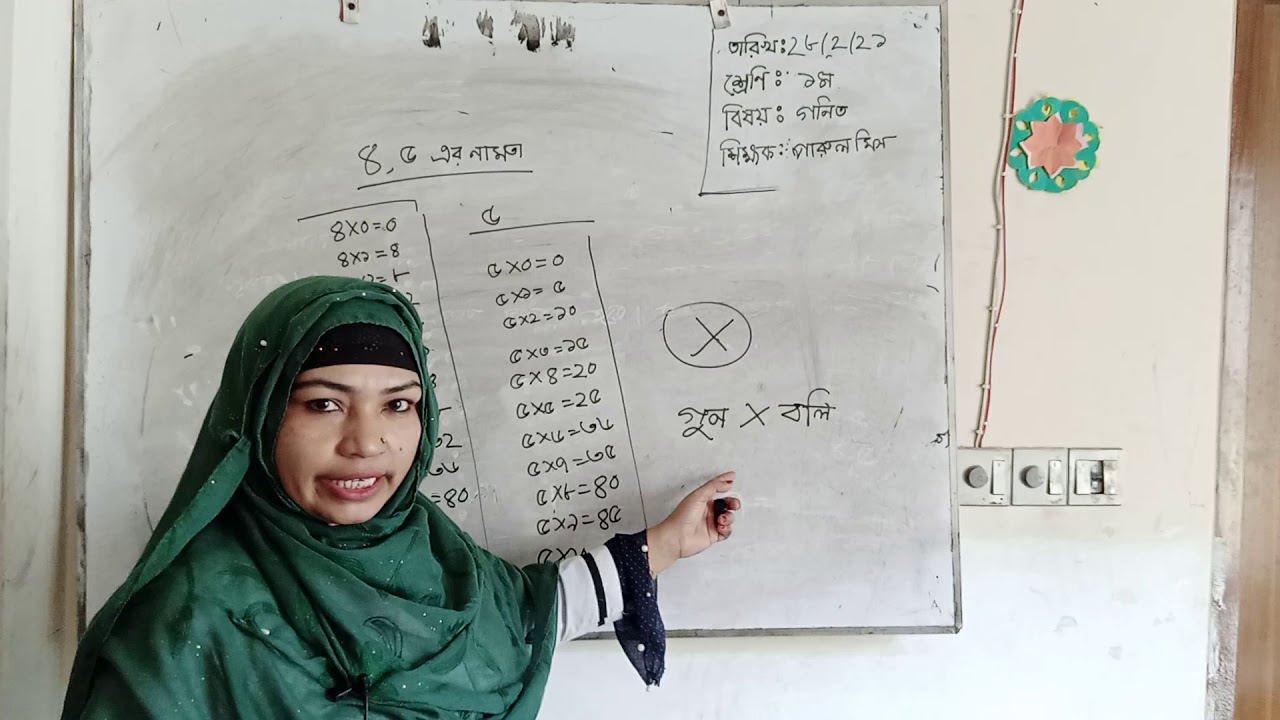 তারিখ: ২৮/২/২১
শ্রেণি: ১ম
বিষয়: গনিত
শিক্ষক: পারুল মিস
৪, ৫ এর নামতা
৪×০=০
৪×১=৪
=৮
২
৩২
৩৬
=৪০
৫
৫×০=০
৫×১=৫
৫×২=১০
৫×৩=১৫
৫×৪=২০
৫×৫=২৫
৫×৬=৩৬
৫×৭=৩৫
৫×৮=৪০
৫×৯=৪৫
৫×১
×
গুন × বলি